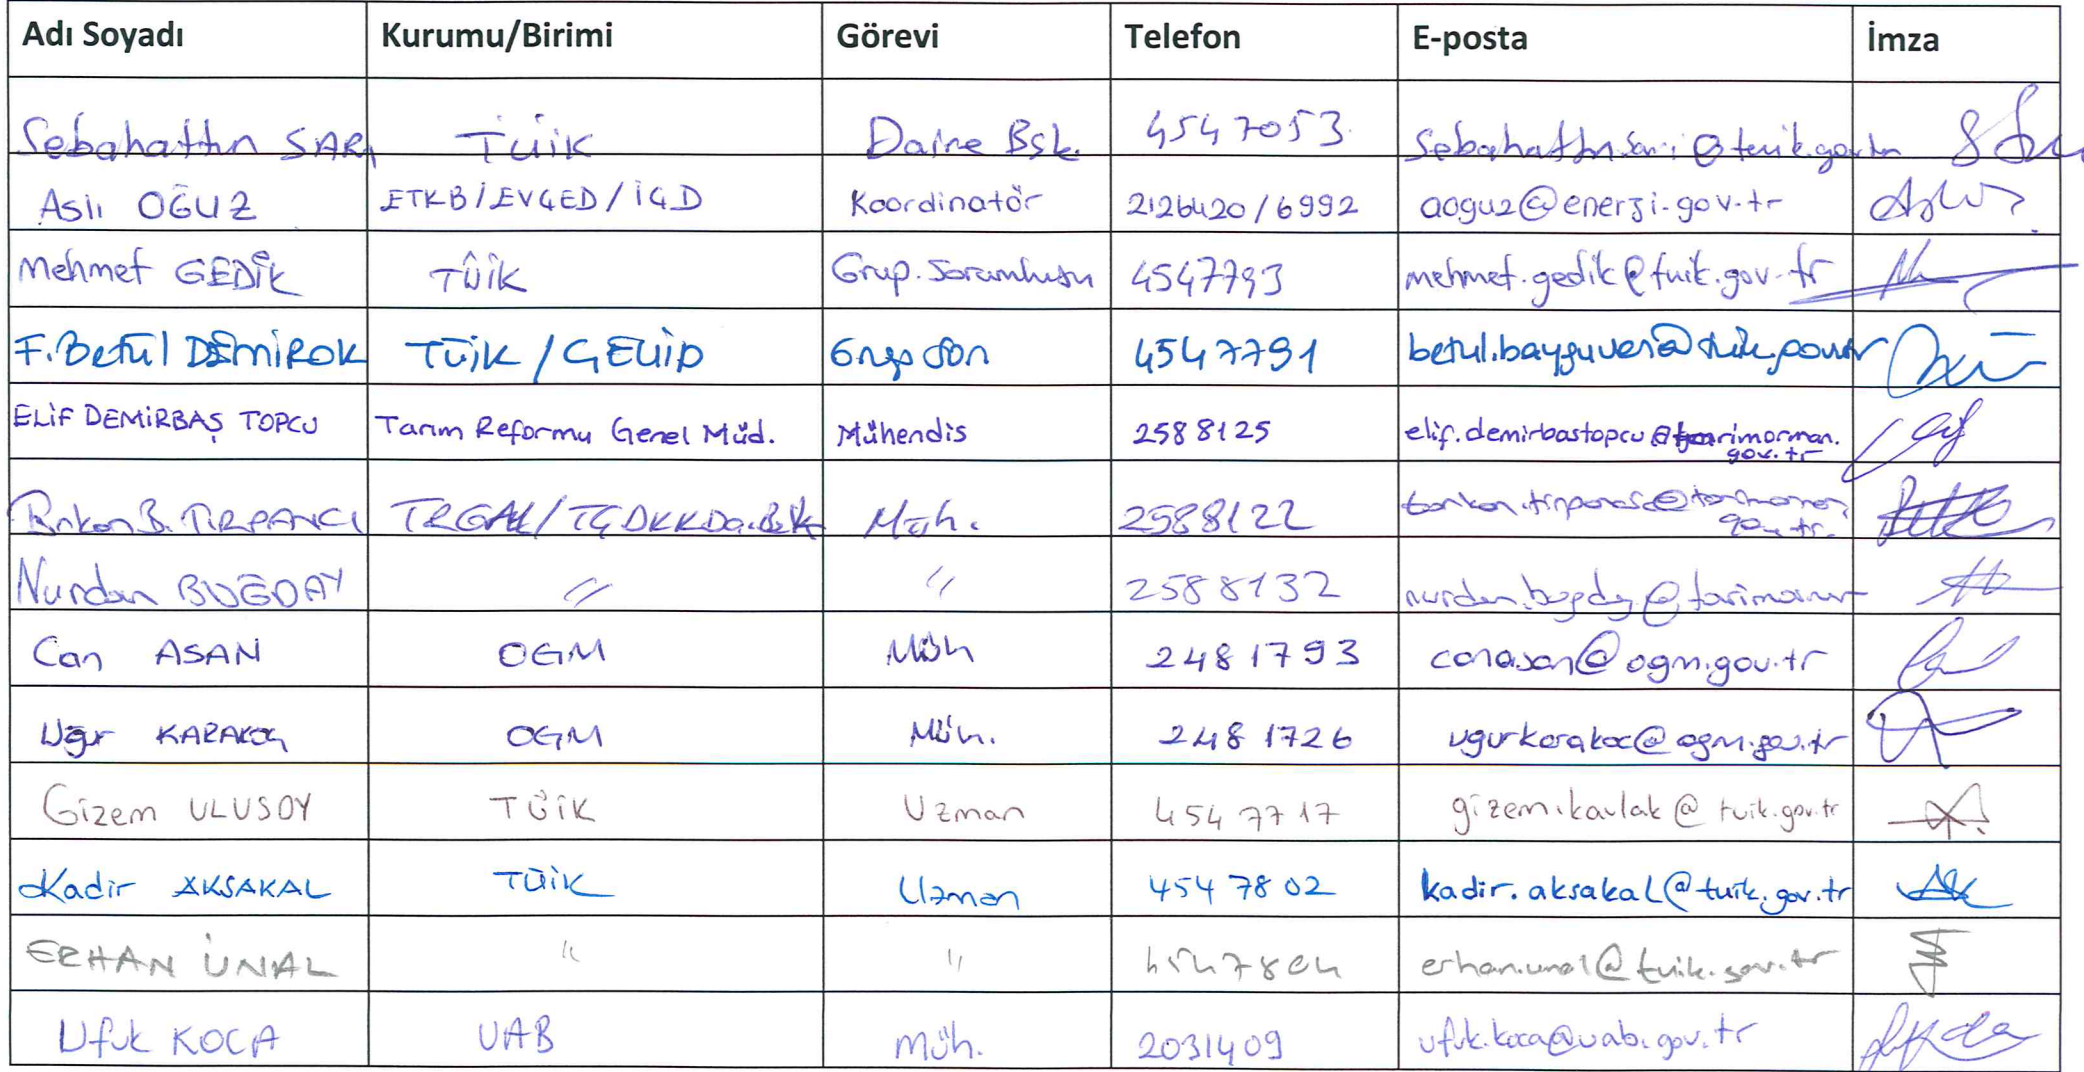 Adı Soyadı Kurumu/Birimi Görevi Telefon E-posta İmza
Sebahattin SARI TÜİK Daire Bşk. 4547053 sebahattin.sari@tuik.gov.tr
Aslı OĞUZ ETKB/EVÇED/İÇD Koordinatör 2126420/6992 aoguz@enerji.gov.tr
Mehmet GEDİK TÜİK Grup. Sorumlusu 4547793 mehmet.gedik@tuik.gov.tr
F. Betül DEMİROK TÜİK / 4547791
ELİF DEMİRBAŞ TOPCU Tarım Reformu Genel Müd. Mühendis 2588125 elif.demirbastopcu@tarimorman.
gov.tr
B. TIRPANCI Müh. 2588122
gov.tr.
Nurdan BUĞDAY " " 2588132
Can ASAN OGM Müh 2481793 canasan@ogm.gov.tr
Uğur KARAKOÇ OGM Müh. 2481726 ugurkarakoc@ogm.gov.tr
Gizem ULUSOY TÜİK Uzman 4547717 gizem.kavlak@tuik.gov.tr
Kadir AKSAKAL TÜİK Uzman 4547802 kadir.aksakal@tuik.gov.tr
ERHAN ÜNAL " " 4547804 erhan.unal@tuik.gov.tr
Ufuk KOCA UAB Müh. 2031409 ufuk.koca@uab.gov.tr